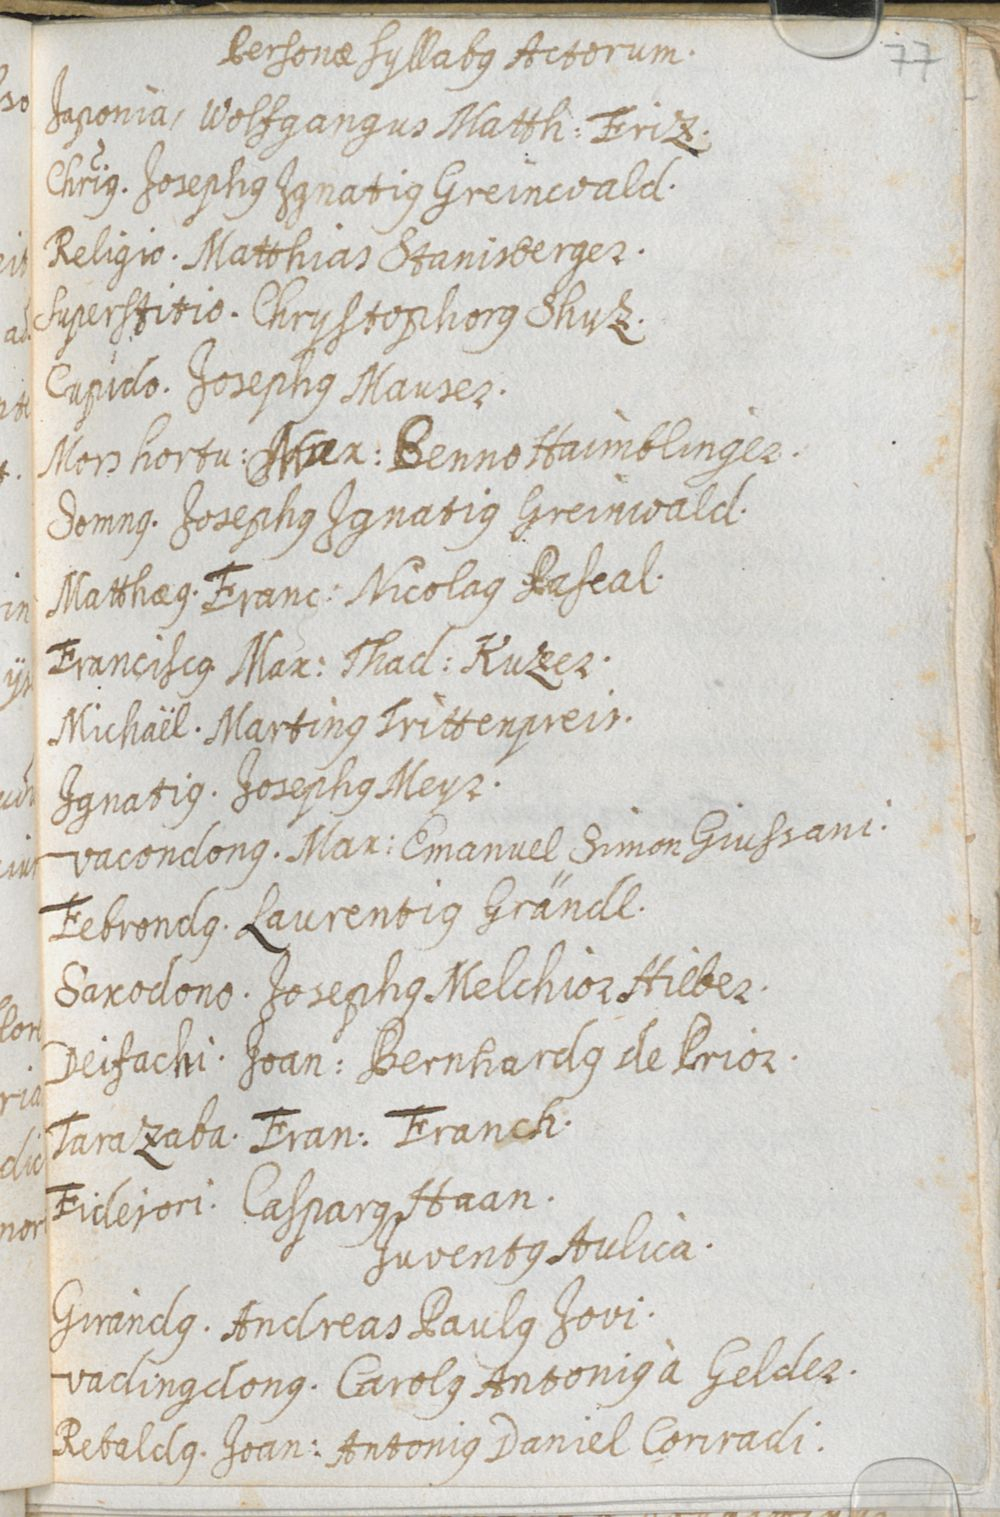 77
Personæ syllabꝯ Actorum.
Japonia, Wolfgangus Matth: Friz.
Chrꝯ. Josephꝯ Ignatiꝯ Greinwald.
Religio. Matthias Stanisberger.
Superstitio. Chrystophorꝯ Shuz.
Cupido. Josephꝯ Mauser.
Mors hortu: Max: Benno Haimblinger.
Somnꝯ. Josephꝯ Ignatiꝯ Greinwald.
Matthæꝯ. Franc: Nicolaꝯ Pascal.
Franciscꝯ Max: Thad: Kuzer.
Michaël. Martinꝯ Trittenpreis.
Ignatiꝯ. Josephꝯ Meyr.
vacondonꝯ. Max: Emanuel Simon Giussani.
Febrondꝯ. Laurentiꝯ Grändl.
Saxodono. Josephꝯ Melchior Hieber.
Deifachi. Joan: Bernhardꝯ de Prior.
Tarazaba. Fran: Franch.
Fidejori. Casparꝯ Haan.
Juventꝯ Aulica.
Girandꝯ. Andreas Paulꝯ Jovi.
vadingdonꝯ. Carolꝯ Antoniꝯ à Gelder.
Rebaldꝯ. Joan: Antoniꝯ Daniel Conradi.